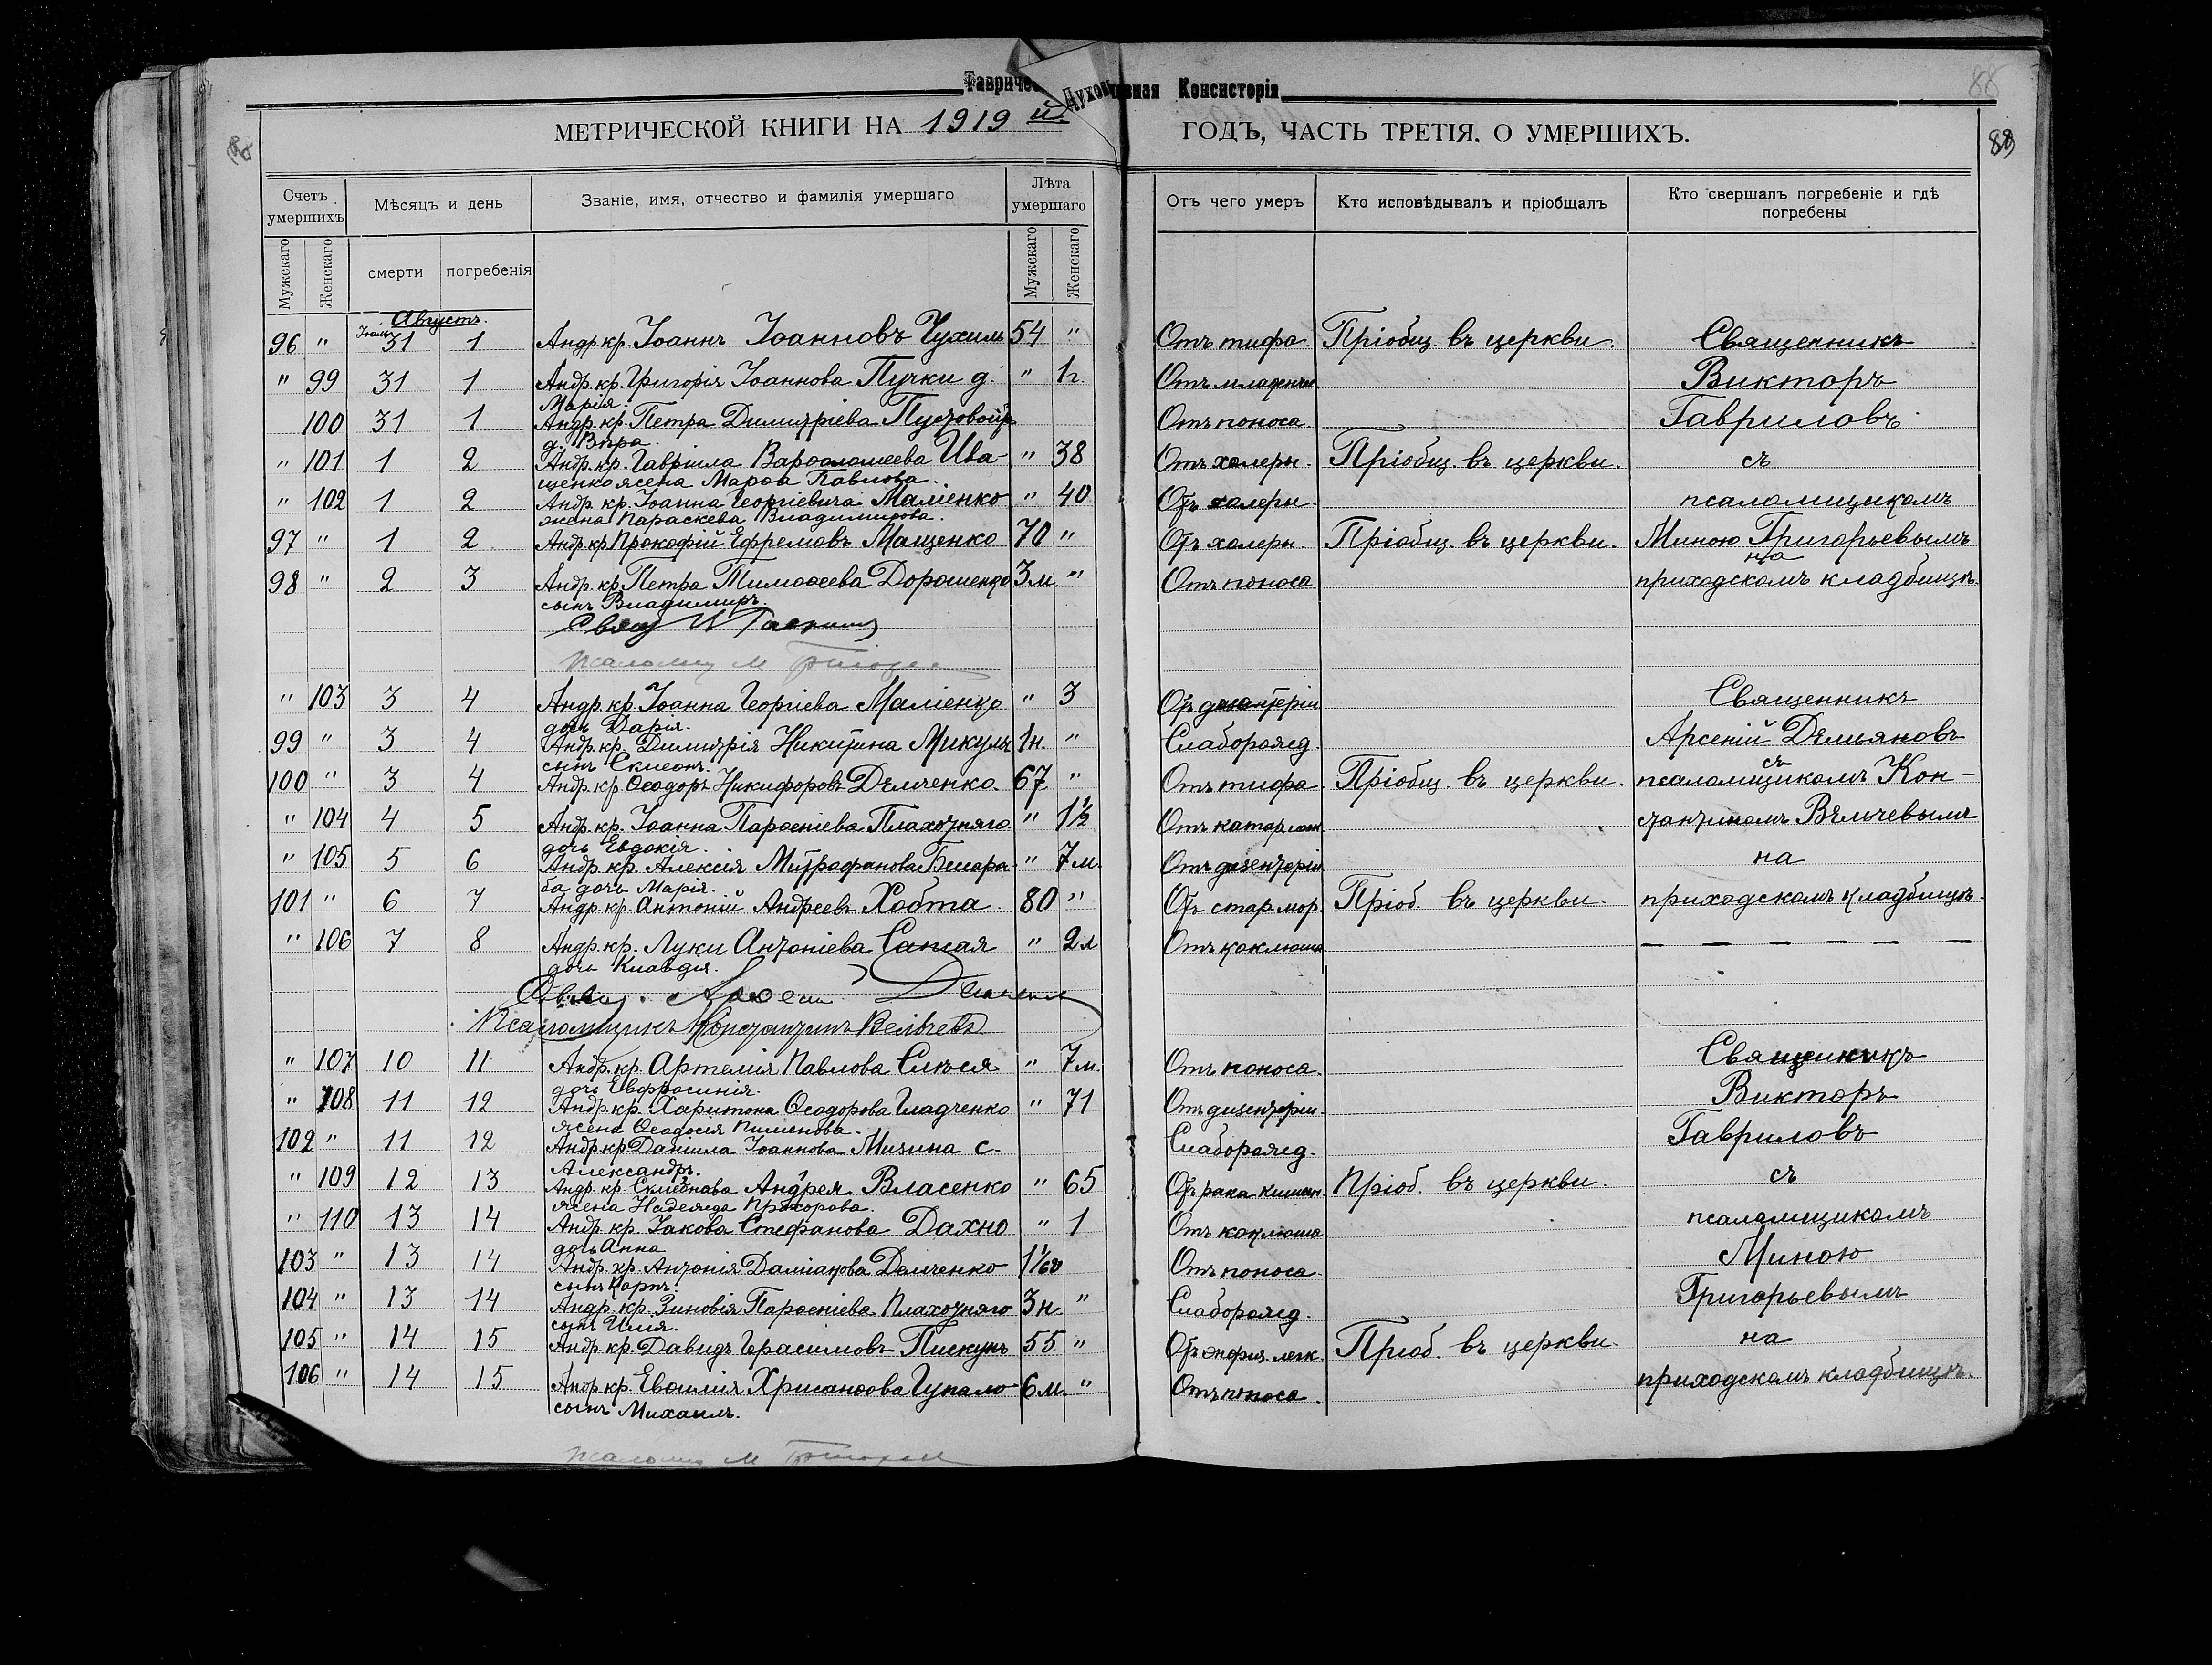 Духовная Консисторія
88
МЕТРИЧЕСКОЙ КНИГИ НА 1919 й ГОДЪ, ЧАСТЬ ТРЕТІЯ. О УМЕРШИХЪ.
Счетъ умершихъ
Мѣсяцъ и день
Званіе, имя, отчество и фамилія умершаго
Лѣта умершаго
Отъ чего умеръ
Кто исповѣдывалъ и пріобщалъ
Кто свершалъ погребеніе и гдѣ погребены
Мужскаго
Женскаго
смерти
погребенія
Мужскаго
Женскаго
Августъ.
96 " 31 1 Андр. кр. Іоаннъ Іоанновъ Чухиль 54 " Отъ тифа Пріобщ. въ церкви. Священникъ
" 99 31 1 Андр. кр. Григорія Іоаннова Пучки д. " 1 г. Викторъ
Марія.
100 31 1 Андр. кр. Петра Димитріева Отъ поноса Гавриловъ
д. Вѣра.
" 101 1 2 Андр. кр. Гавріила Варѳоломеева Ива- " 38 Отъ холеры. Пріобщ. въ церкви. съ
щенко жена Марѳа Павлова.
" 102 1 2 Андр. кр. Іоанна Георгіевича Маліенко " 40 Отъ холеры псаломщикомъ
жена Параскева Владимирова.
97 " 1 2 Андр. кр. Прокофій Ефремовъ Мащенко 70 " Отъ холеры. Пріобщ. въ церкви. Миною Григорьевымъ
на
98 " 2 3 Андр. кр. Петра Тимоѳеева Дорошенко 3 м " Отъ поноса приходскомъ кладбищѣ.
сынъ Владимиръ.
" 103 3 4 Андр. кр. Іоанна Георгіева Маліенко " 3 Священникъ
дочь Дарія.
99 " 3 4 Андр. кр. Димитрія Никитина 1 н. " Слаборожд. Арсеній Дѣмяновъ
сынъ Симеонъ. съ
100 " 3 4 Андр. кр. Ѳеодоръ Никифоровъ Дѣмченко. 67 " Отъ тифа Пріобщ. въ церкви. псаломщикомъ Кон-
" 104 4 5 Андр. кр. Іоанна Парѳеніева Плахотняго " 1½ стантиномъ Вѣльчевымъ
дочь Евдокія.
" 105 5 6 Андр. кр. Алексія Митрофанова " 7 м. Отъ дизентеріи на
дочь Марія.
101 " 6 7 Андр. кр. Антоній Андреевъ Хобта. 80 " Отъ стар. Пріоб. въ церкви. приходскомъ кладбищѣ.
" 106 7 8 Андр. кр. Луки Антоніева " Отъ коклюша — — — — — —
дочь Клавдія.
Псаломщикъ Константинъ Вельчевъ
" 107 10 11 Андр. кр. Артемія Павлова " 7 м. Отъ поноса. Священникъ
дочь Евфросинія.
" 108 11 12 Андр. кр. Харитона Ѳеодорова Гладченко " 71 Отъ дизентеріи. Викторъ
жена Ѳеодосія Пименова.
102 " 11 12 Андр. кр. Даніила Іоаннова Мизина с. Слаборожд. Гавриловъ
Александръ.
" 109 12 13 Андр. кр. Андрея Власенко " 65 Отъ рака Пріоб. въ церкви. съ
жена Надежда Прохорова.
" 110 13 14 Андр. кр. Іакова Стефанова Дахно " 1 Отъ коклюша псаломщикомъ
дочь Анна
103 " 13 14 Андр. кр. Антонія Даміанова Демченко Отъ поноса. Миною
сынъ Карпъ.
104 " 13 14 Андр. кр. Зиновія Парѳеніева Плахотняго 3 н. " Слаборожд. Григорьевымъ
сынъ Илія.
105 " 14 15 Андр. кр. Давидъ Герасимовъ Пискунъ 55 " Пріоб. въ церкви. на
106 " 14 15 Андр. кр. Евѳимія Хрисанѳова Чупало 6 м. " Отъ поноса. приходскомъ кладбищѣ.
сынъ Михаилъ.